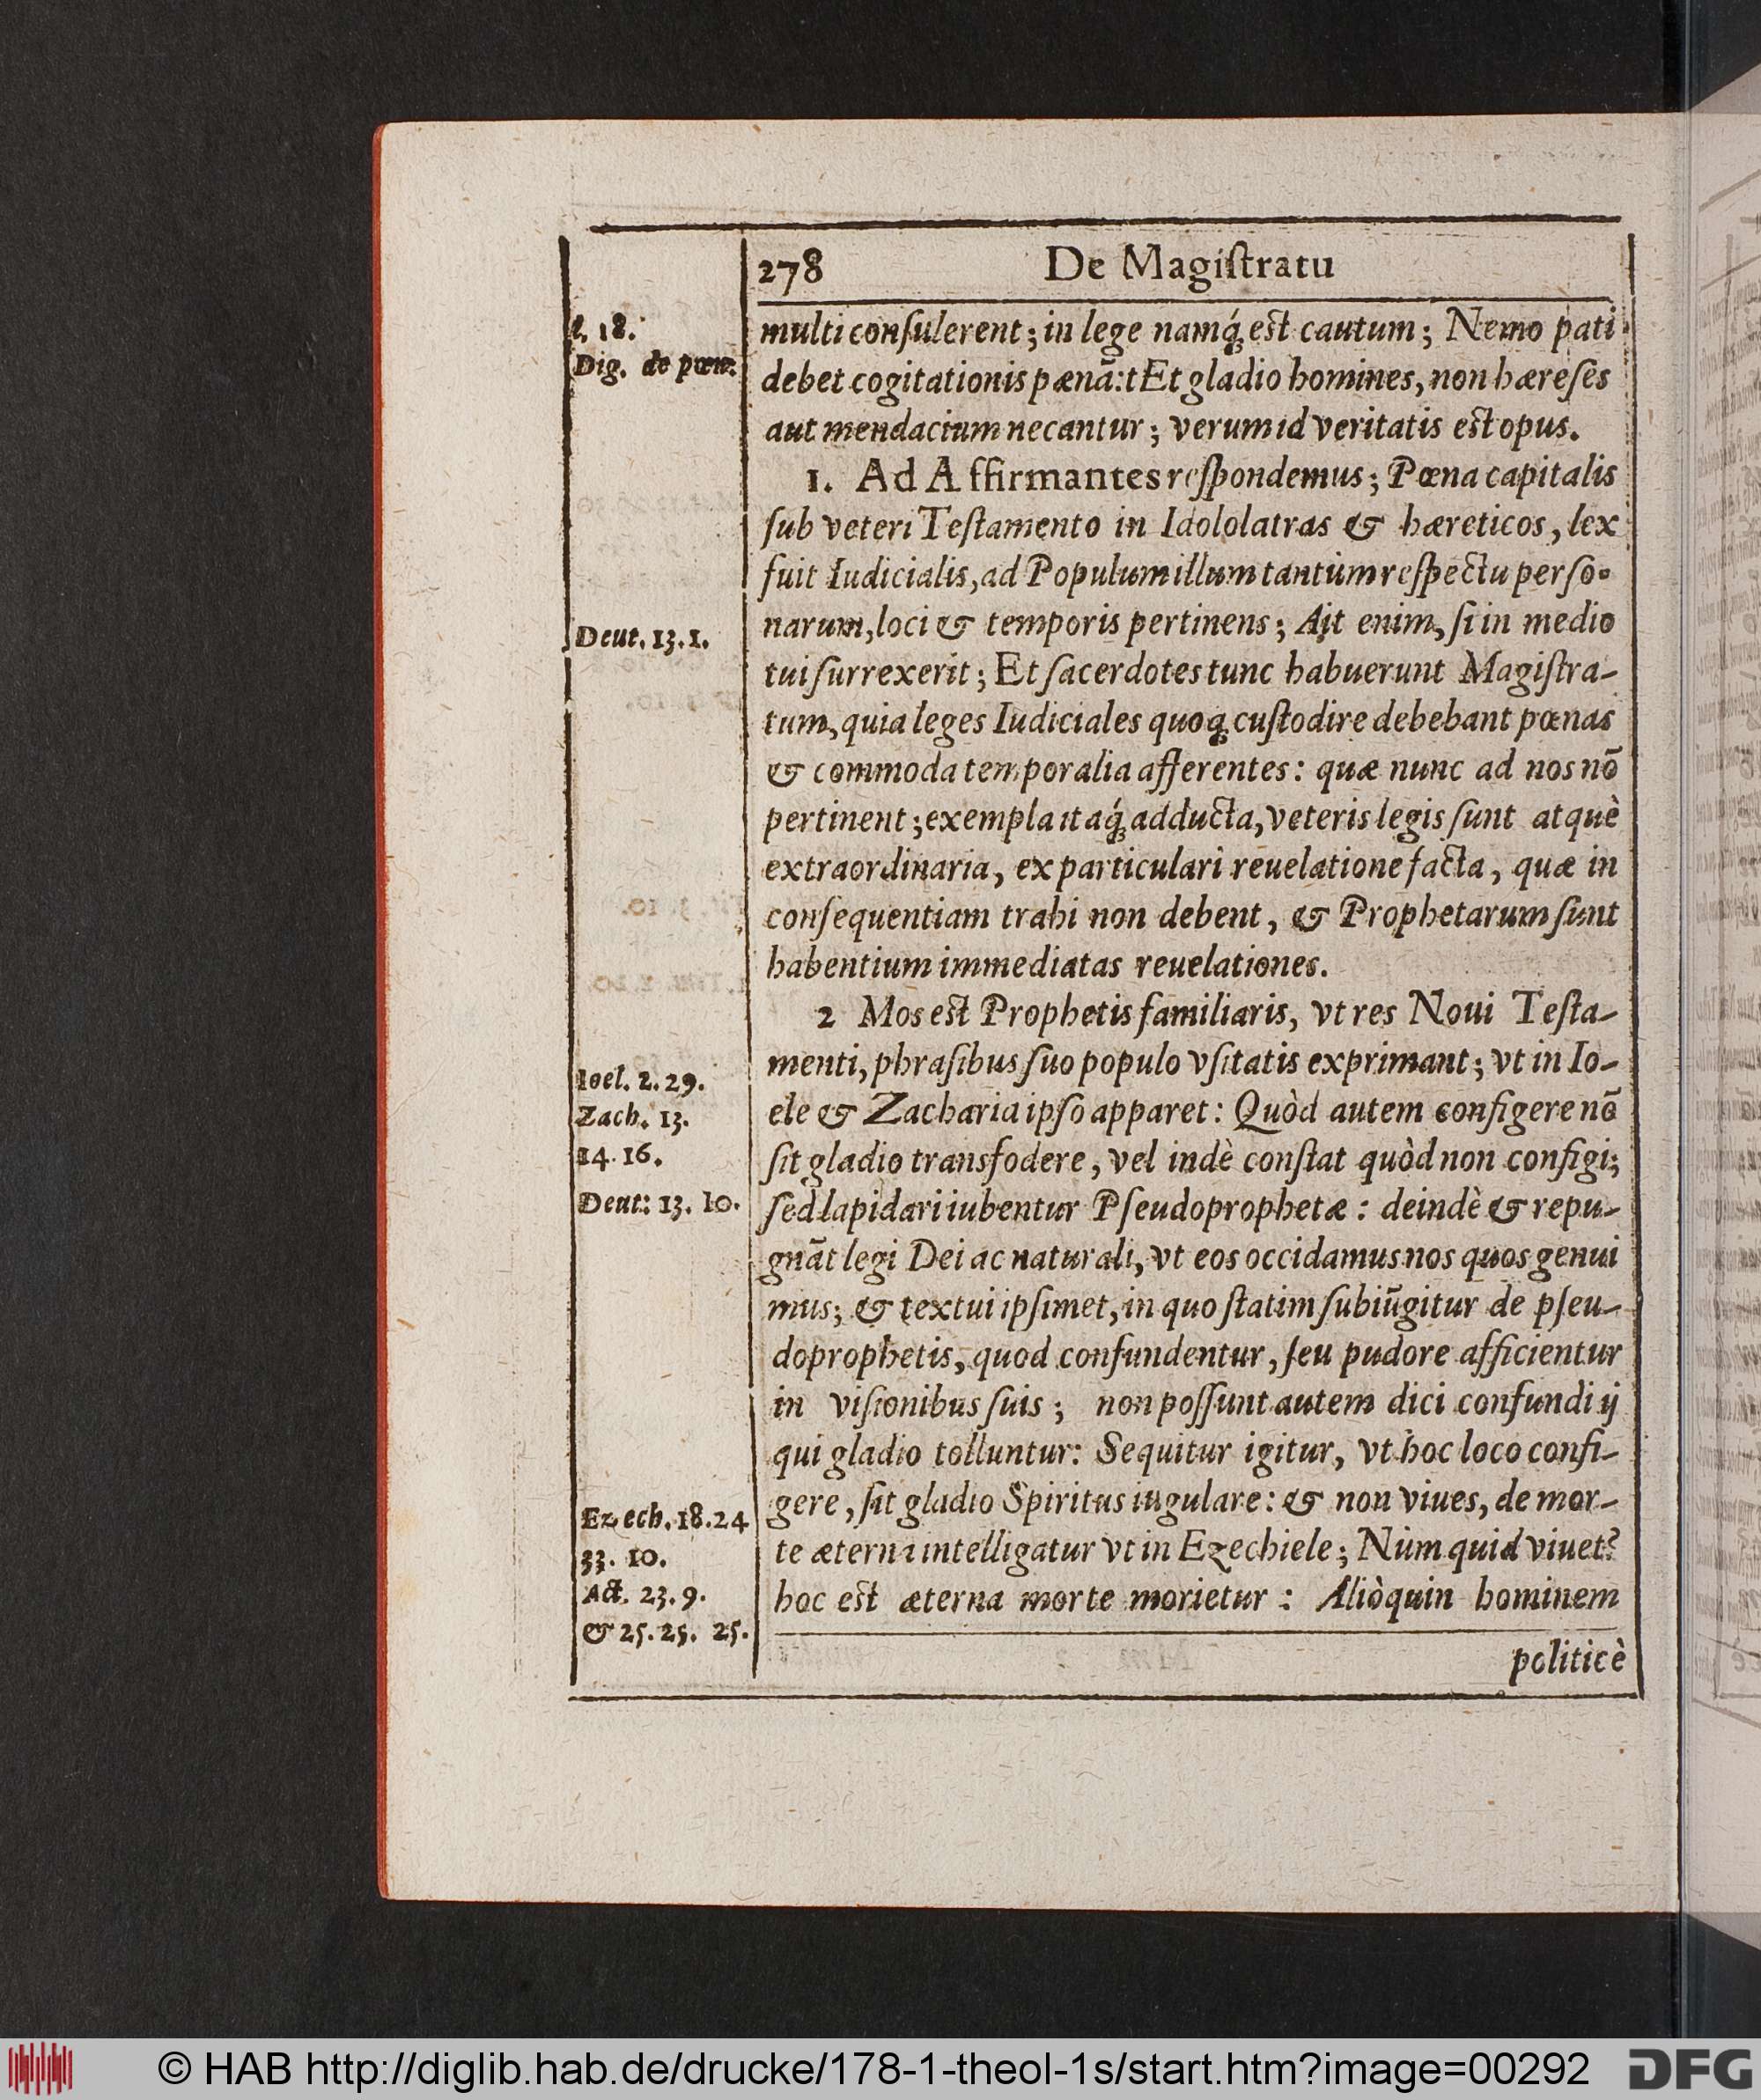 278 De Magiſtratu
l. 18.
Dig. de pœn.
multi conſulerent; in lege namq́; est cautum; Nemo pati
debet cogitationis pænã: t Et gladio homines, non hæreſes
aut mendacium necantur; verum id veritatis est opus.
1. Ad Affirmantes reſpondemus; Pœna capitalis
ſub veteri Teſtamento in Idololatras & hæreticos, lex
fuit Iudicialis, ad Populum illum tantùm reſpectu perſo-
Deut. 13. 1.
narum, loci & temporis pertinens; Ait enim, ſi in medio
tui ſurrexerit; Et ſacerdotes tunc habuerunt Magiſtra-
tum, quia leges Iudiciales quoq; cuſtodire debebant pœnas
& commoda temporalia afferentes: quæ nunc ad nos nō
pertinent; exempla itaq́; adducta, veteris legis ſunt atquè
extraordinaria, ex particulari reuelatione facta, quæ in
conſequentiam trahi non debent, & Prophetarum ſunt
habentium immediatas reuelationes.
2 Mos est Prophetis familiaris, vt res Noui Teſta-
menti, phraſibus ſuo populo vſitatis exprimant; vt in Io-
Ioel. 2. 29.
Zach. 13.
14. 16.
Deut: 13. 10.
ele & Zacharia ipſo apparet: Quòd autem configere nō
ſit gladio transfodere, vel indè conſtat quòd non configi;
ſed lapidari iubentur Pſeudoprophetæ: deindè & repu-
gnãt legi Dei ac naturali, vt eos occidamus nos quos genui
mus; & textui ipſimet, in quo ſtatim ſubiũgitur de pſeu-
doprophetis, quod confundentur, ſeu pudore afficientur
in viſionibus ſuis; non poſſunt autem dici confundi ij
qui gladio tolluntur: Sequitur igitur, vt hoc loco confi-
gere, ſit gladio Spiritus iugulare: & non viues, de mor-
Ezech. 18. 24
33. 10.
Act. 23. 9.
& 25. 25. 25.
te æterna intelligatur vt in Ezechiele; Num quid viuet?
hoc est æterna morte morietur: Aliòquin hominem
politicè
© HAB http://diglib.hab.de/drucke/178-1-theol-1s/start.htm?image=00292
DFG